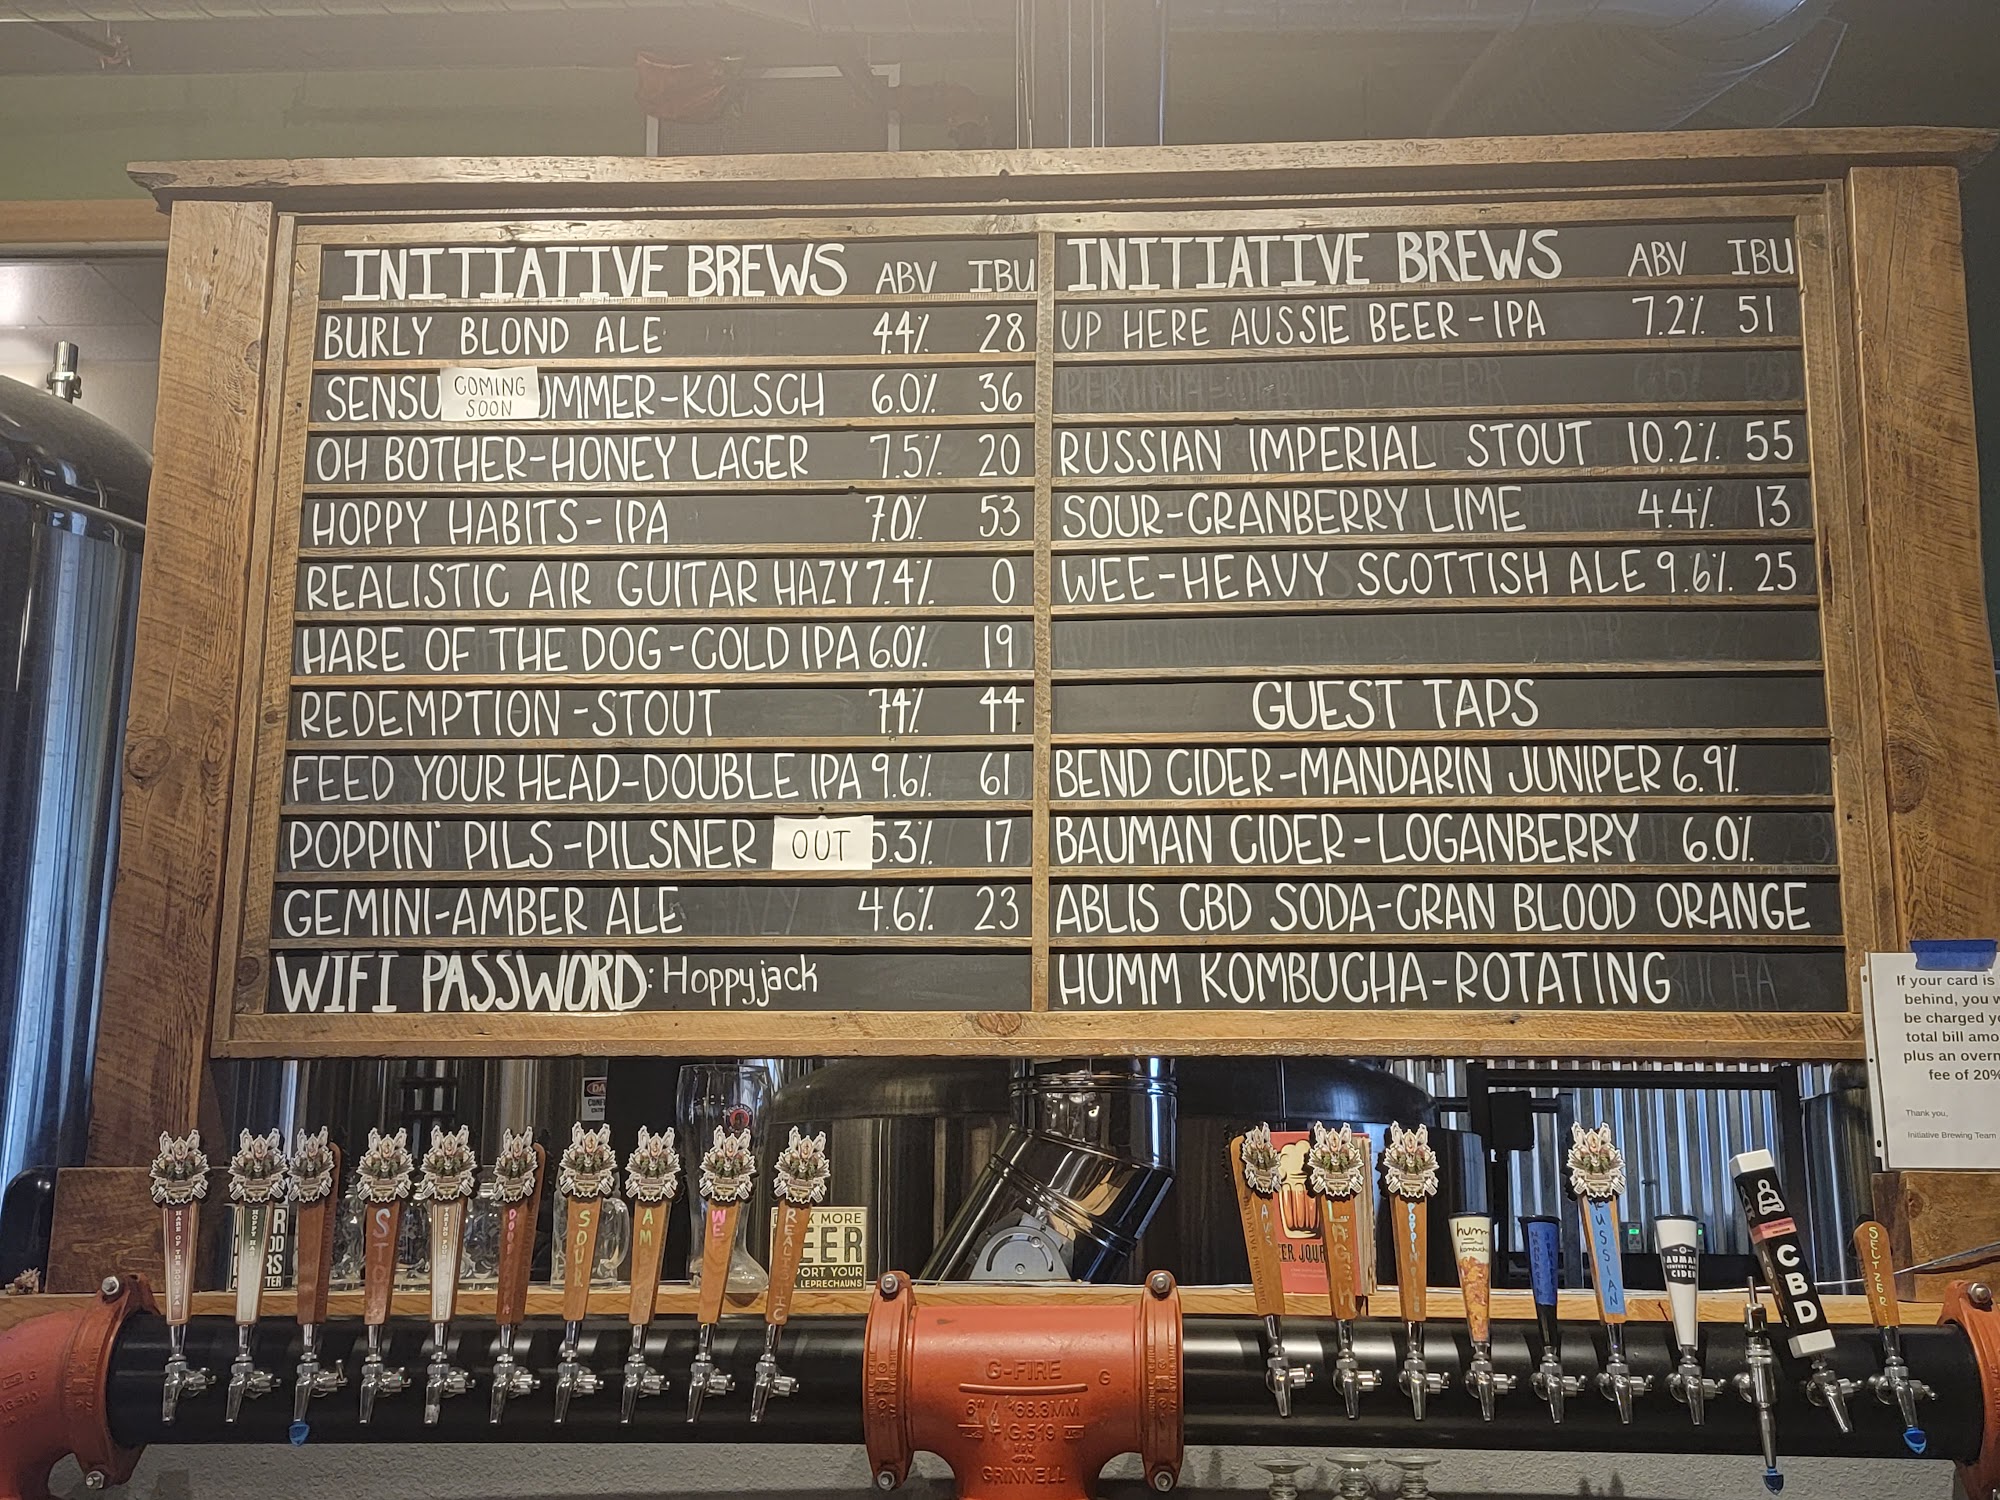 INITIATIVE BREWS ABV IBU
BURLY BLOND ALE 4.4% 28
SENSU COMING SOON UMMER-KOLSCH 6.0% 36
OH BOTHER-HONEY LAGER 7.5% 20
HOPPY HABITS-IPA 7.0% 53
REALISTIC AIR GUITAR HAZY 7.4% 0
HARE OF THE DOG-COLD IPA 6.0% 19
REDEMPTION-STOUT 7.4% 44
FEED YOUR HEAD-DOUBLE IPA 9.6% 61
POPPIN' PILS-PILSNER OUT 5.3% 17
GEMINI-AMBER ALE 4.6% 23
WIFI PASSWORD: Hoppyjack
INITIATIVE BREWS ABV IBU
UP HERE AUSSIE BEER-IPA 7.2% 51
RUSSIAN IMPERIAL STOUT 10.2% 55
SOUR-CRANBERRY LIME 4.4% 13
WEE-HEAVY SCOTTISH ALE 9.6% 25
GUEST TAPS
BEND CIDER-MANDARIN JUNIPER 6.9%
BAUMAN CIDER-LOGANBERRY 6.0%
ABLIS CBD SODA-CRAN BLOOD ORANGE
HUMM KOMBUCHA-ROTATING
If your card is
behind, you w
be charged yo
total bill amo
plus an overn
fee of 20%
Thank you,
Initiative Brewing Team
HARE OF THE DOG IPA
SOUR
AM
WE
REALISTIC
MORE
BEER
PORT YOUR
LEPRECHAUNS
LAGER
POPPIN
humm
kombucha
RUSSIAN
CIDER
CBD
SELTZER
G-FIRE
6" / 168.3MM
FIG.519
GRINNELL